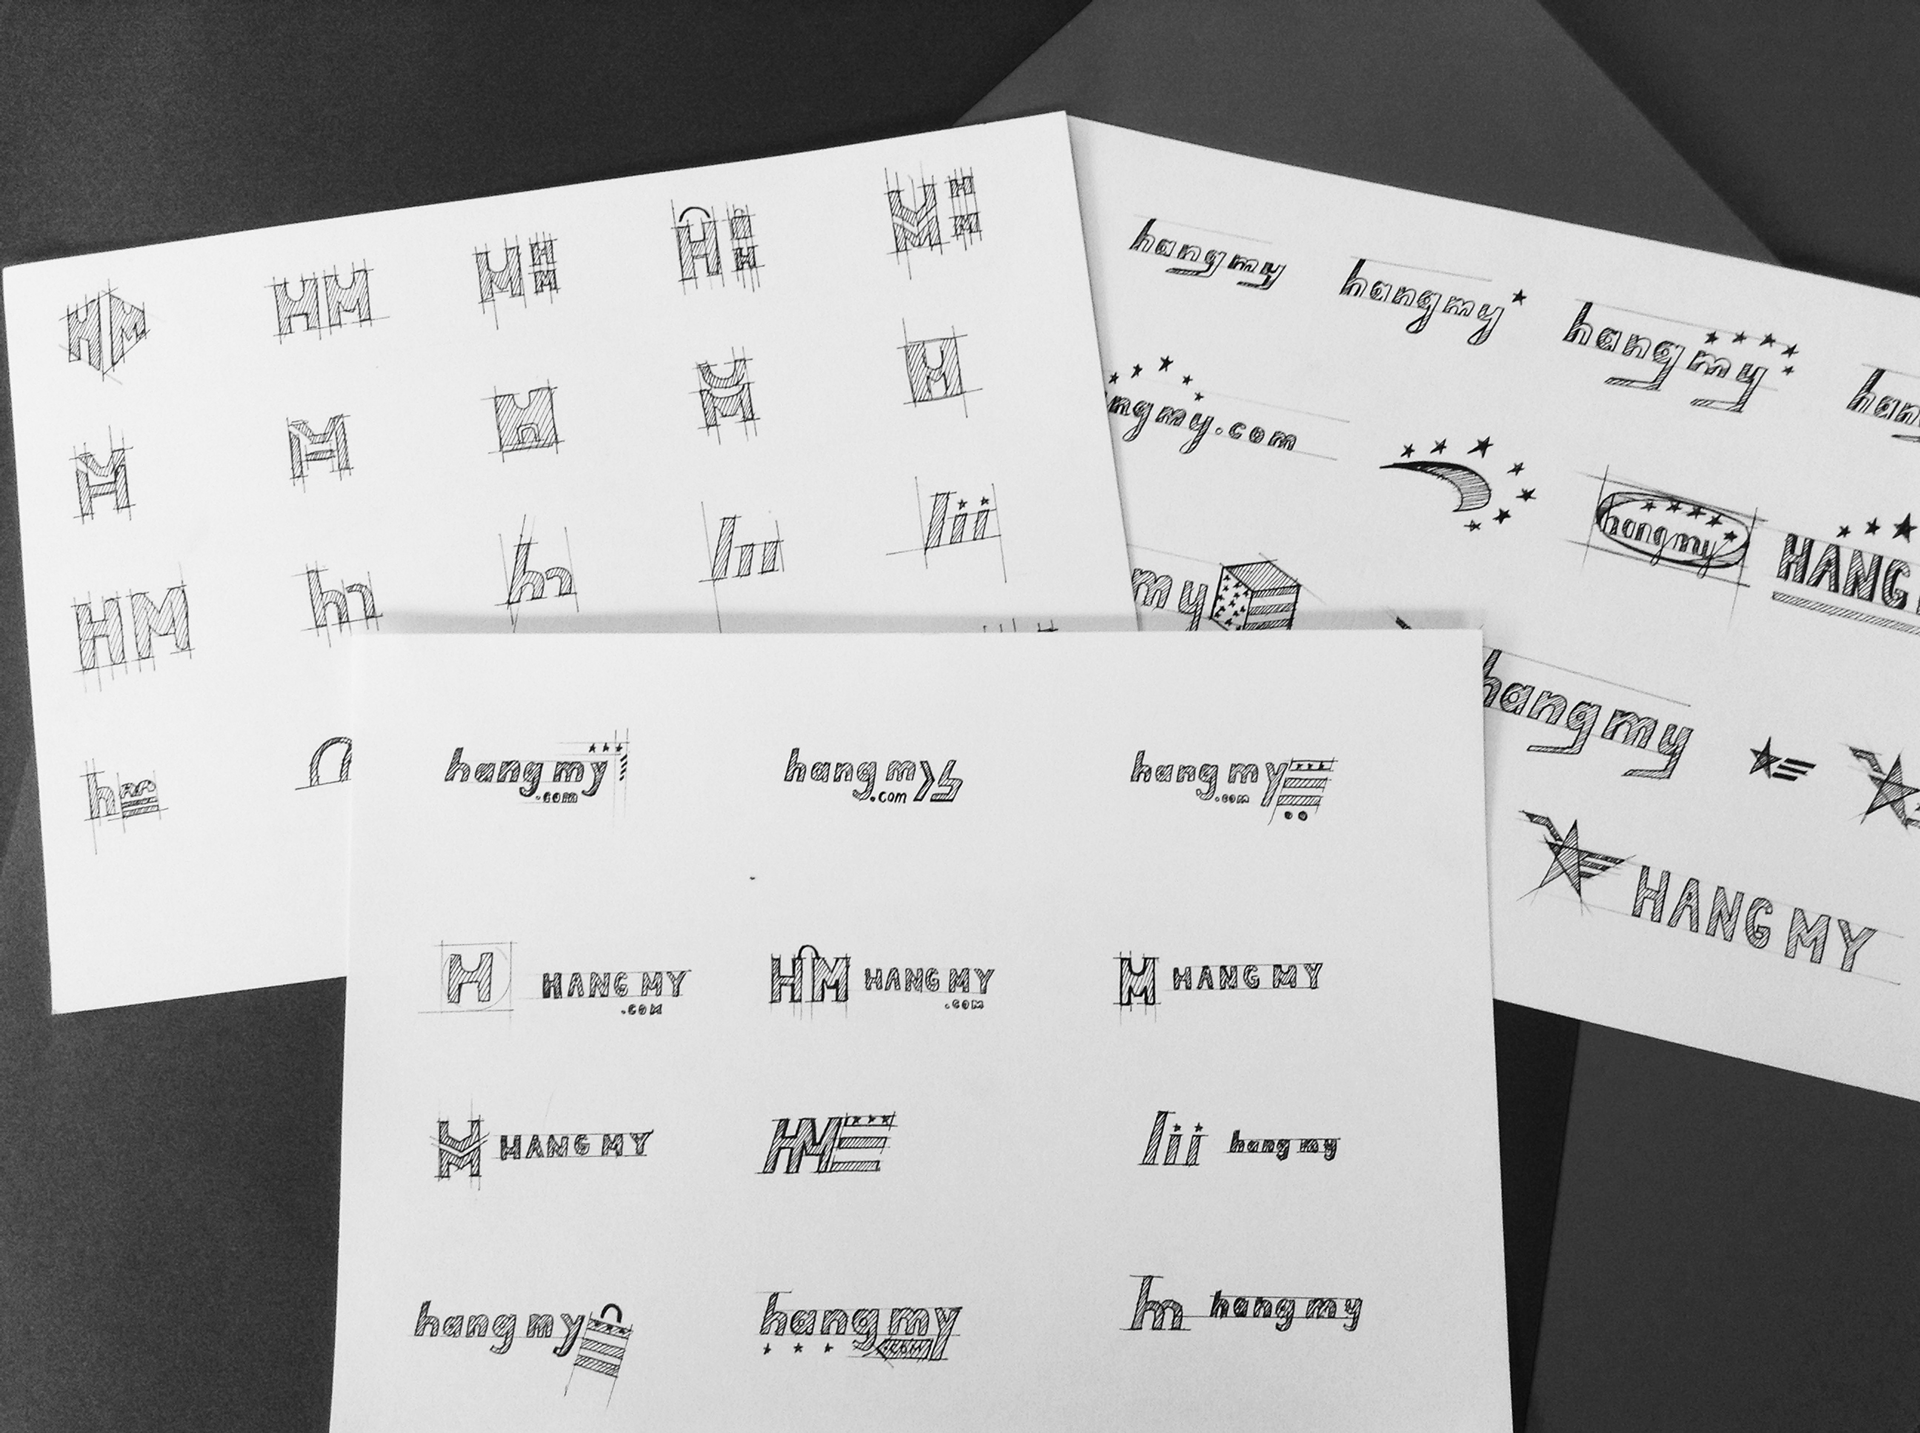 HM
HM
M H M
H
M H M
H
M
M
M
H
HM
hm
hm
lii
lii
h
hangmy
hangmy
hangmy
han
ngmy.com
hangmy
HANG
my
hangmy
HANG MY
hang my
.com
hang my
.com
hang my
.com
H HANG MY
.COM
HM HANG MY
.COM
M HANG MY
HM HANG MY
HM
lii hang my
hang my
hang my
.com
hm hang my